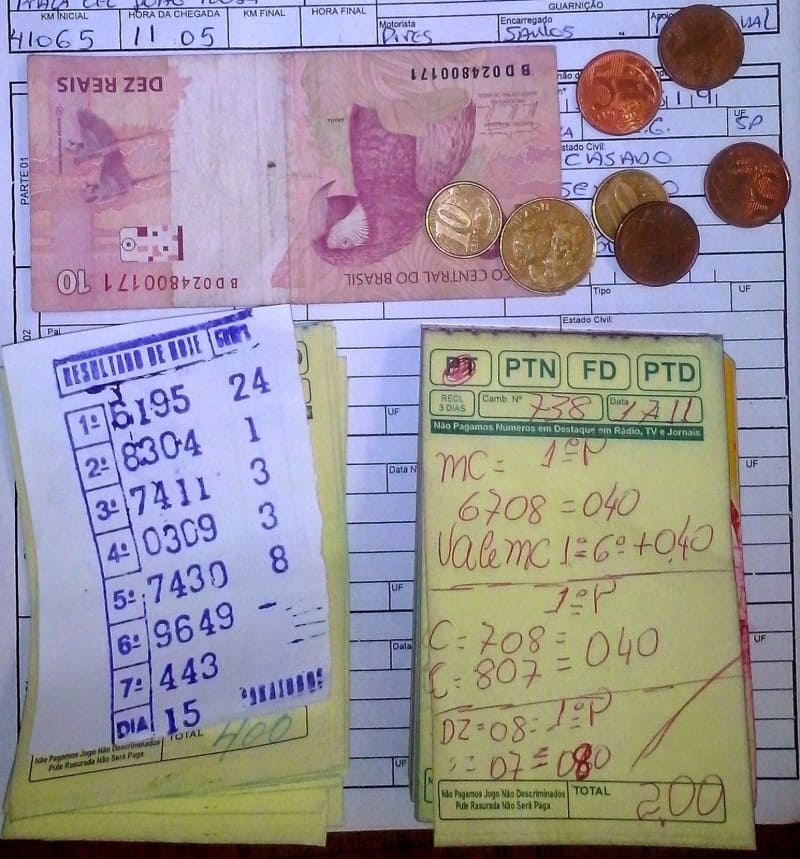 GUARNIÇÃO
KM INICIAL HORA DA CHEGADA KM FINAL HORA FINAL Motorista Encarregado
41065 11 05 PIRES SANTOS
DEZ REAIS
B D 024800171
UF
SP
Estado Civil:
CASADO
PARTE 01
10
B D 024800171
CO CENTRAL DO BRASIL
10
BRASIL
10
5
Tipo UF
Estado Civil:
02
Pai
RESULTADO DE HOJE
1º 6195 24
2º 8304 1
3º 7411 3
4º 0309 3
5º 7430 8
6º 9649 -
7º 443
DIA 15
TOTAL 400
Não Pagamos Jogo Não Descriminados
Pule Rasurada Não Será Paga
UF
Data N
UF
Data
UF
UF
PT PTN FD PTD
RECL 3 DIAS Camb. Nº 738 Data 17 11
Não Pagamos Números em Destaque em Rádio, TV e Jornais
MC= 1ºP
6708 = 040
Vale MC 1º= 6º + 0,40
1ºP
C = 708 =
C = 807 = 040
DZ = 08 = 1ºP
07 = 080
Não Pagamos Jogo Não Descriminados
Pule Rasurada Não Será Paga
TOTAL 2,00
UF
UF